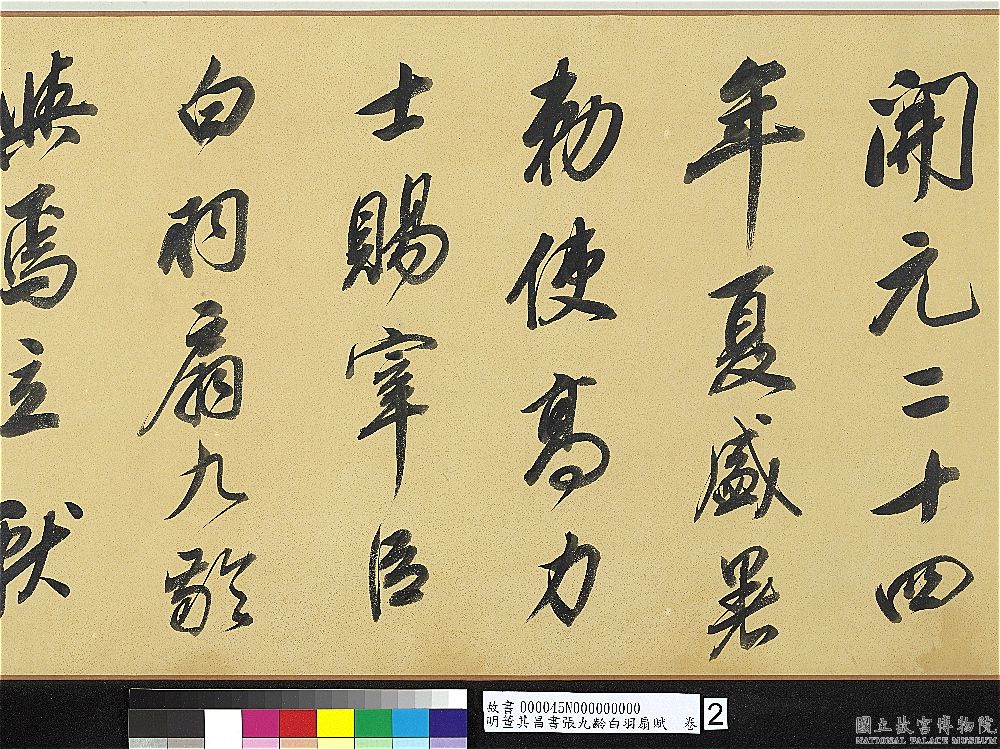 開元二十四
年夏盛暑
勑使高力
士賜宰臣
白羽扇九齡
與焉立獻
故書 000045N000000000
明董其昌書張九齡白羽扇賦 卷
2
國立故宮博物院
NATIONAL PALACE MUSEUM